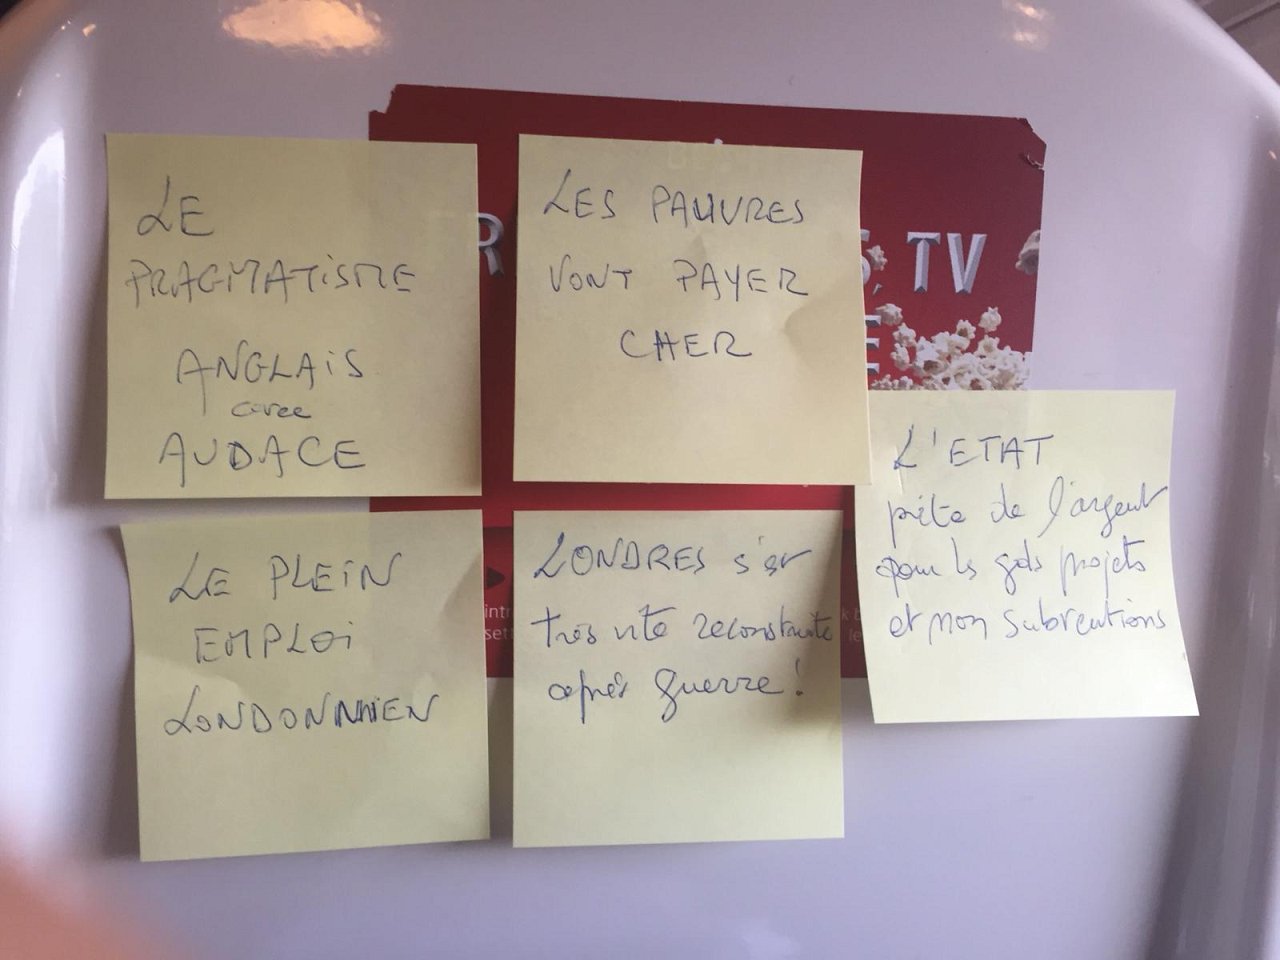 LE
PRAGMATISME
ANGLAIS
avec
AUDACE
LES PAUVRES
VONT PAYER
CHER
L'ETAT
prête de l'argent
pour ls gds projets
et non subventions
LE PLEIN
EMPLOI
LONDONNIEN
LONDRES s'est
très vite reconstruite
après guerre !
R
TV
E
intr
set